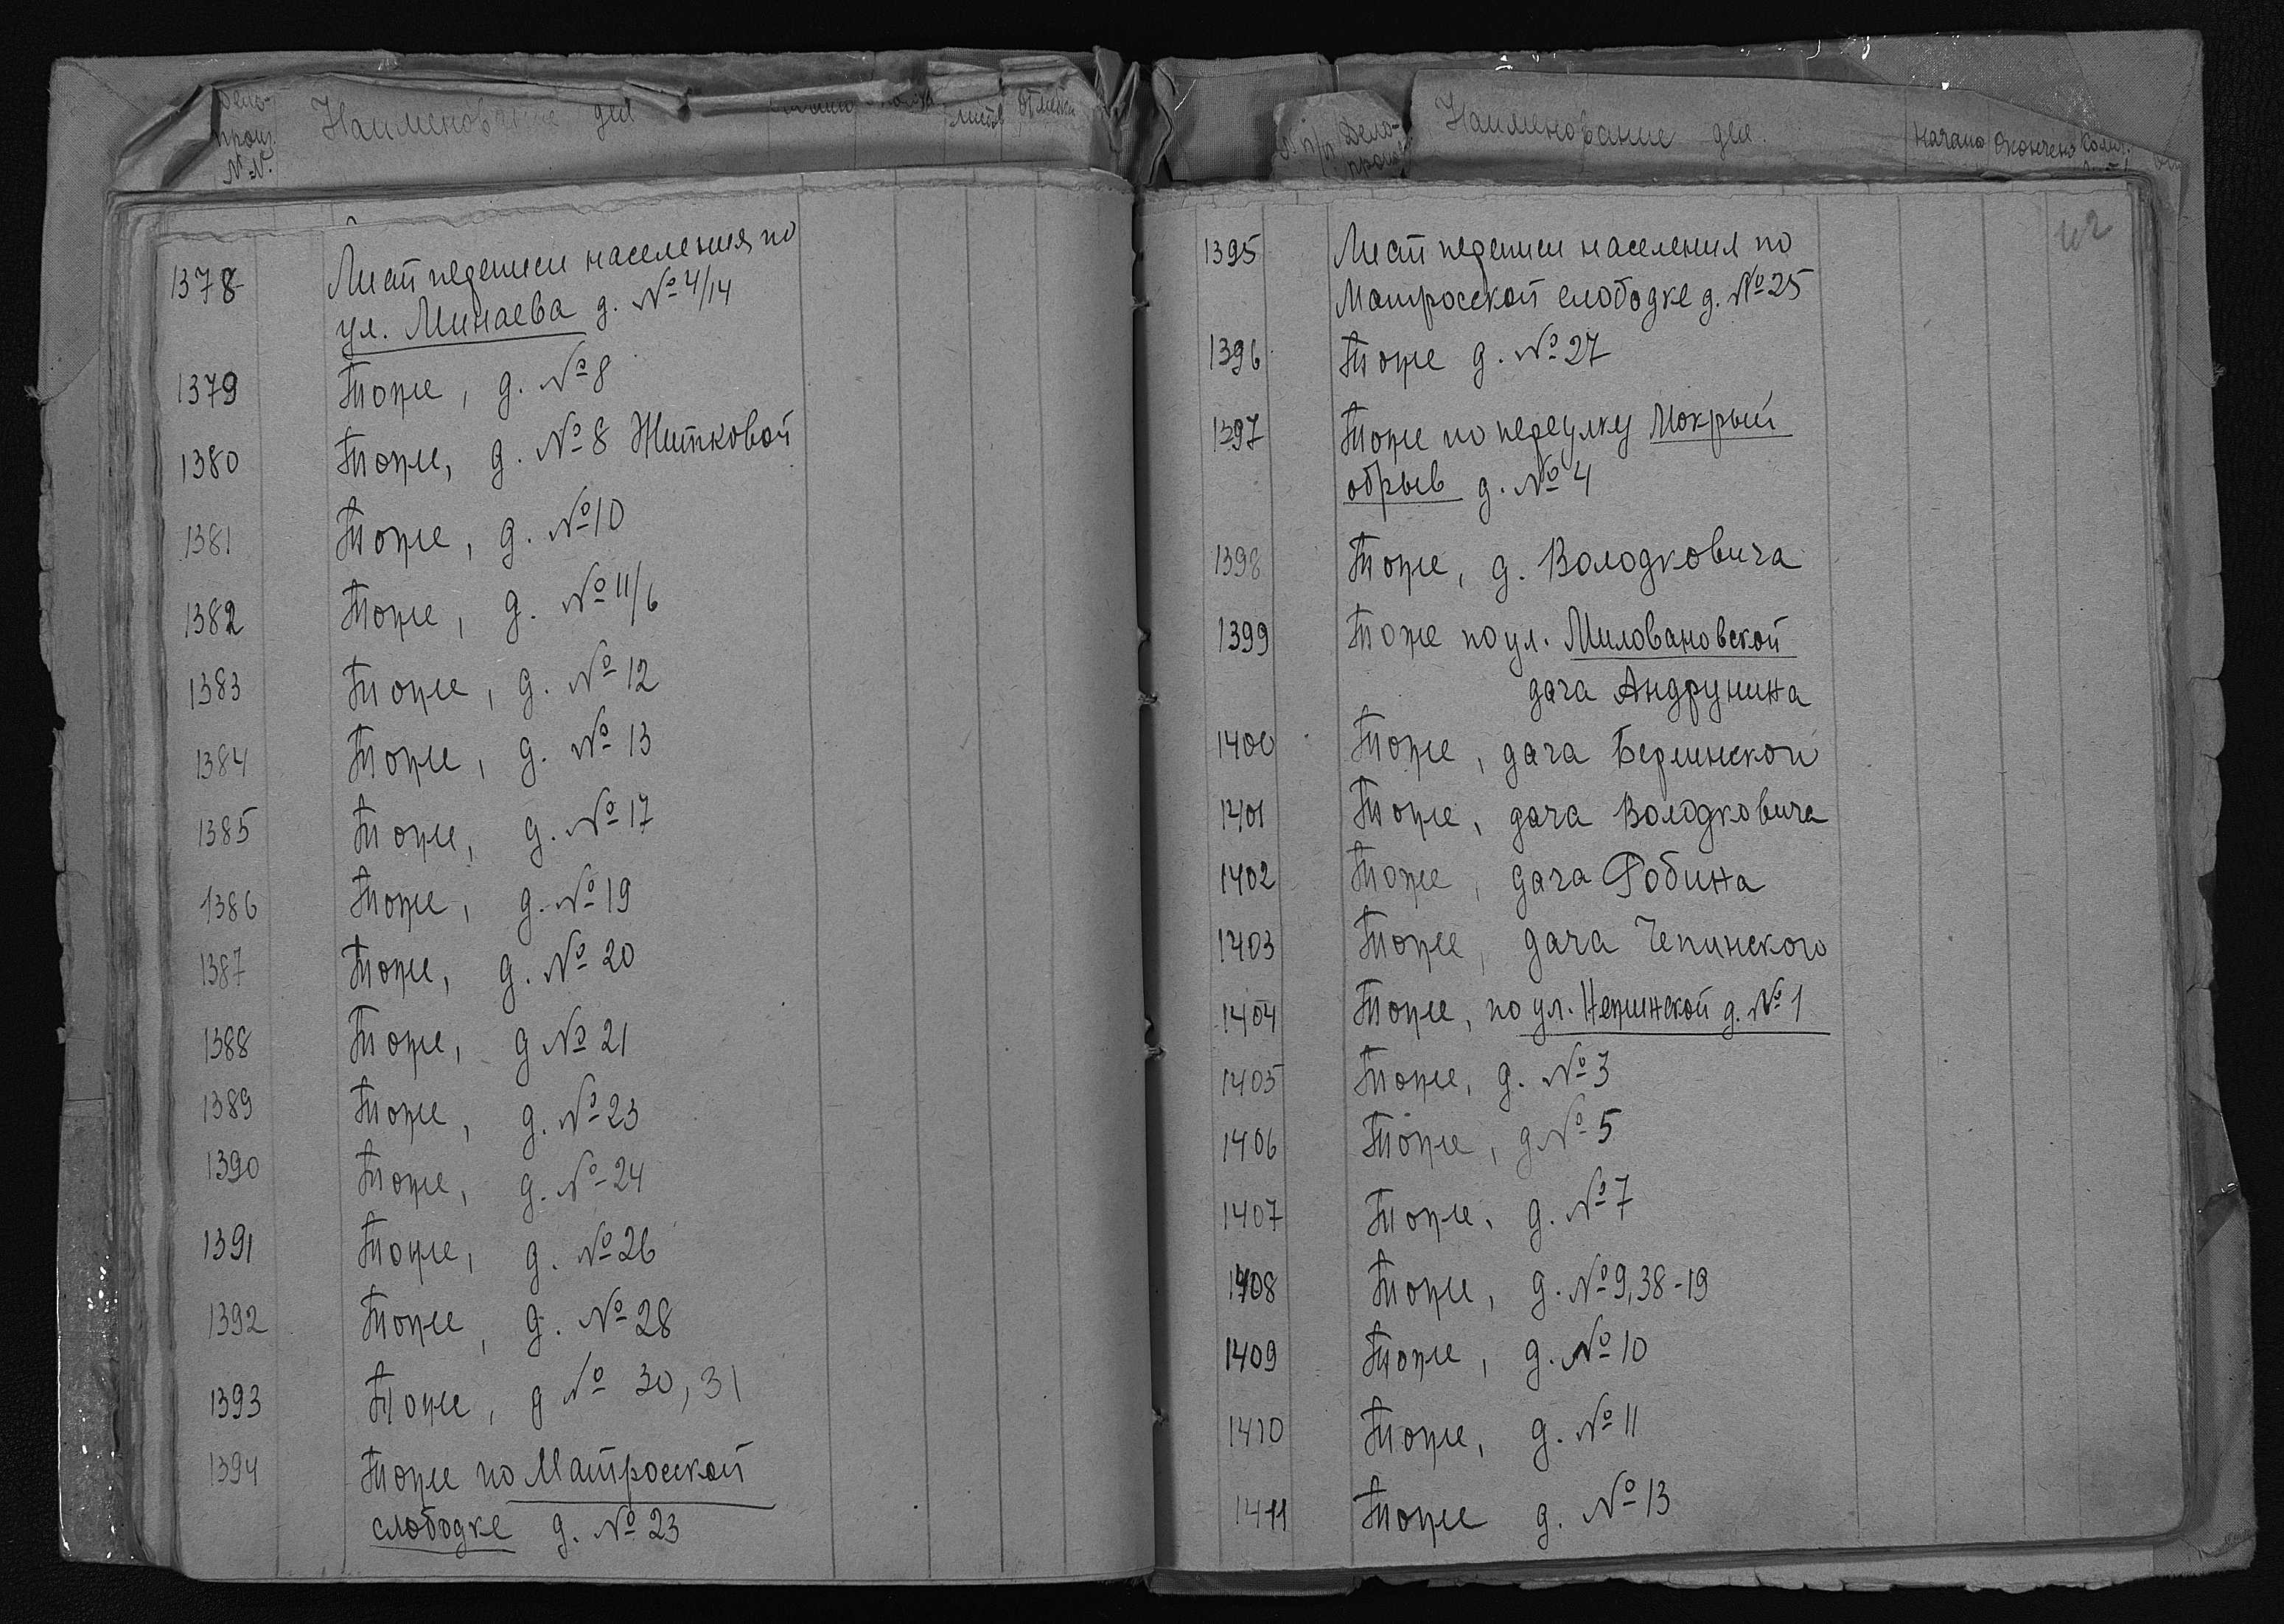 Дело-
произ.
№№
Наименование дел
листов
отметки
1378 Лист переписи населения по
ул. Минаева д. №4/14
1379 Тоже, д. №8
1380 Тоже, д. №8 Житковой
1381 Тоже, д. №10
1382 Тоже, д. №11/6
1383 Тоже, д. №12
1384 Тоже, д. №13
1385 Тоже, д. №17
1386 Тоже, д. №19
1387 Тоже, д. №20
1388 Тоже, д №21
1389 Тоже, д. №23
1390 Тоже, д. №24
1391 Тоже, д. №26
1392 Тоже, д. №28
1393 Тоже, д № 30, 31
1394 Тоже по Матросской
слободке д. №23
№ п/п
Дело-
произв.
Наименование дел.
Начало
Окончено
Колич.
42
1395 Лист переписи населения по
Матросской слободке д. №25
1396 Тоже д. №27
1397 Тоже по переулку Мокрый
обрыв д. №4
1398 Тоже, д. Володковича
1399 Тоже по ул. Миловановской
дача Андрунина
1400 Тоже, дача Берлинской
1401 Тоже, дача Володковича
1402 Тоже, дача Робина
1403 Тоже, дача Чепинского
1404 Тоже, по ул. Нежинской д. №1
1405 Тоже, д. №3
1406 Тоже, д №5
1407 Тоже, д. №7
1408 Тоже, д. №9,38-19
1409 Тоже, д. №10
1410 Тоже, д. №11
1411 Тоже д. №13